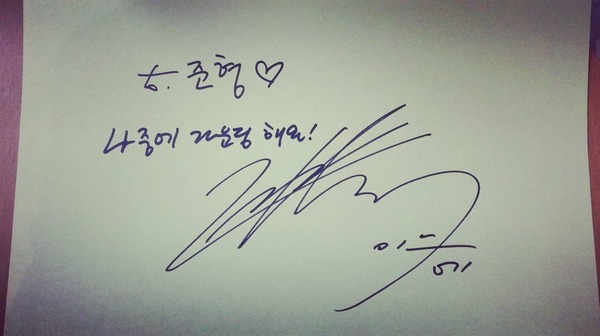 to. 준형♡
나중에 라운딩 해요!